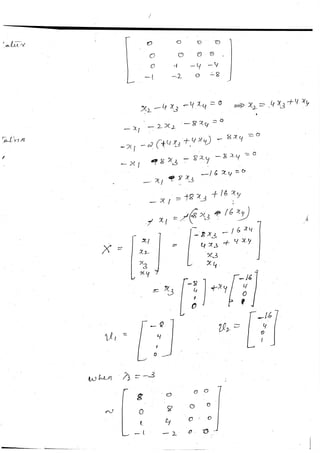 0 0 0 0
0 0 0 0
0 1 -4 -4
-1 -2 0 -8
x2 - 4x3 - 4x4 = 0 ⇒ x2 = 4x3 + 4x4
-x1 - 2x2 - 8x4 = 0
-x1 - 2(+4x3 + 4x4) - 8x4 = 0
-x1 - 8x3 - 8x4 - 8x4 = 0
-x1 - 8x3 - 16x4 = 0
-x1 = +8x3 + 16x4
x1 = -(8x3 + 16x4)
X = [x1 x2 x3 x4] = [-8x3 - 16x4
4x3 + 4x4
x3
x4]
= x3 [-8 4 1 0] + x4 [-16 4 0 1]
v1 = [-8 4 1 0] v2 = [-16 4 0 1]
when λ3 = -3
~ 8 0 0 0
0 8 0 0
1 4 0 0
-1 -2 0 0